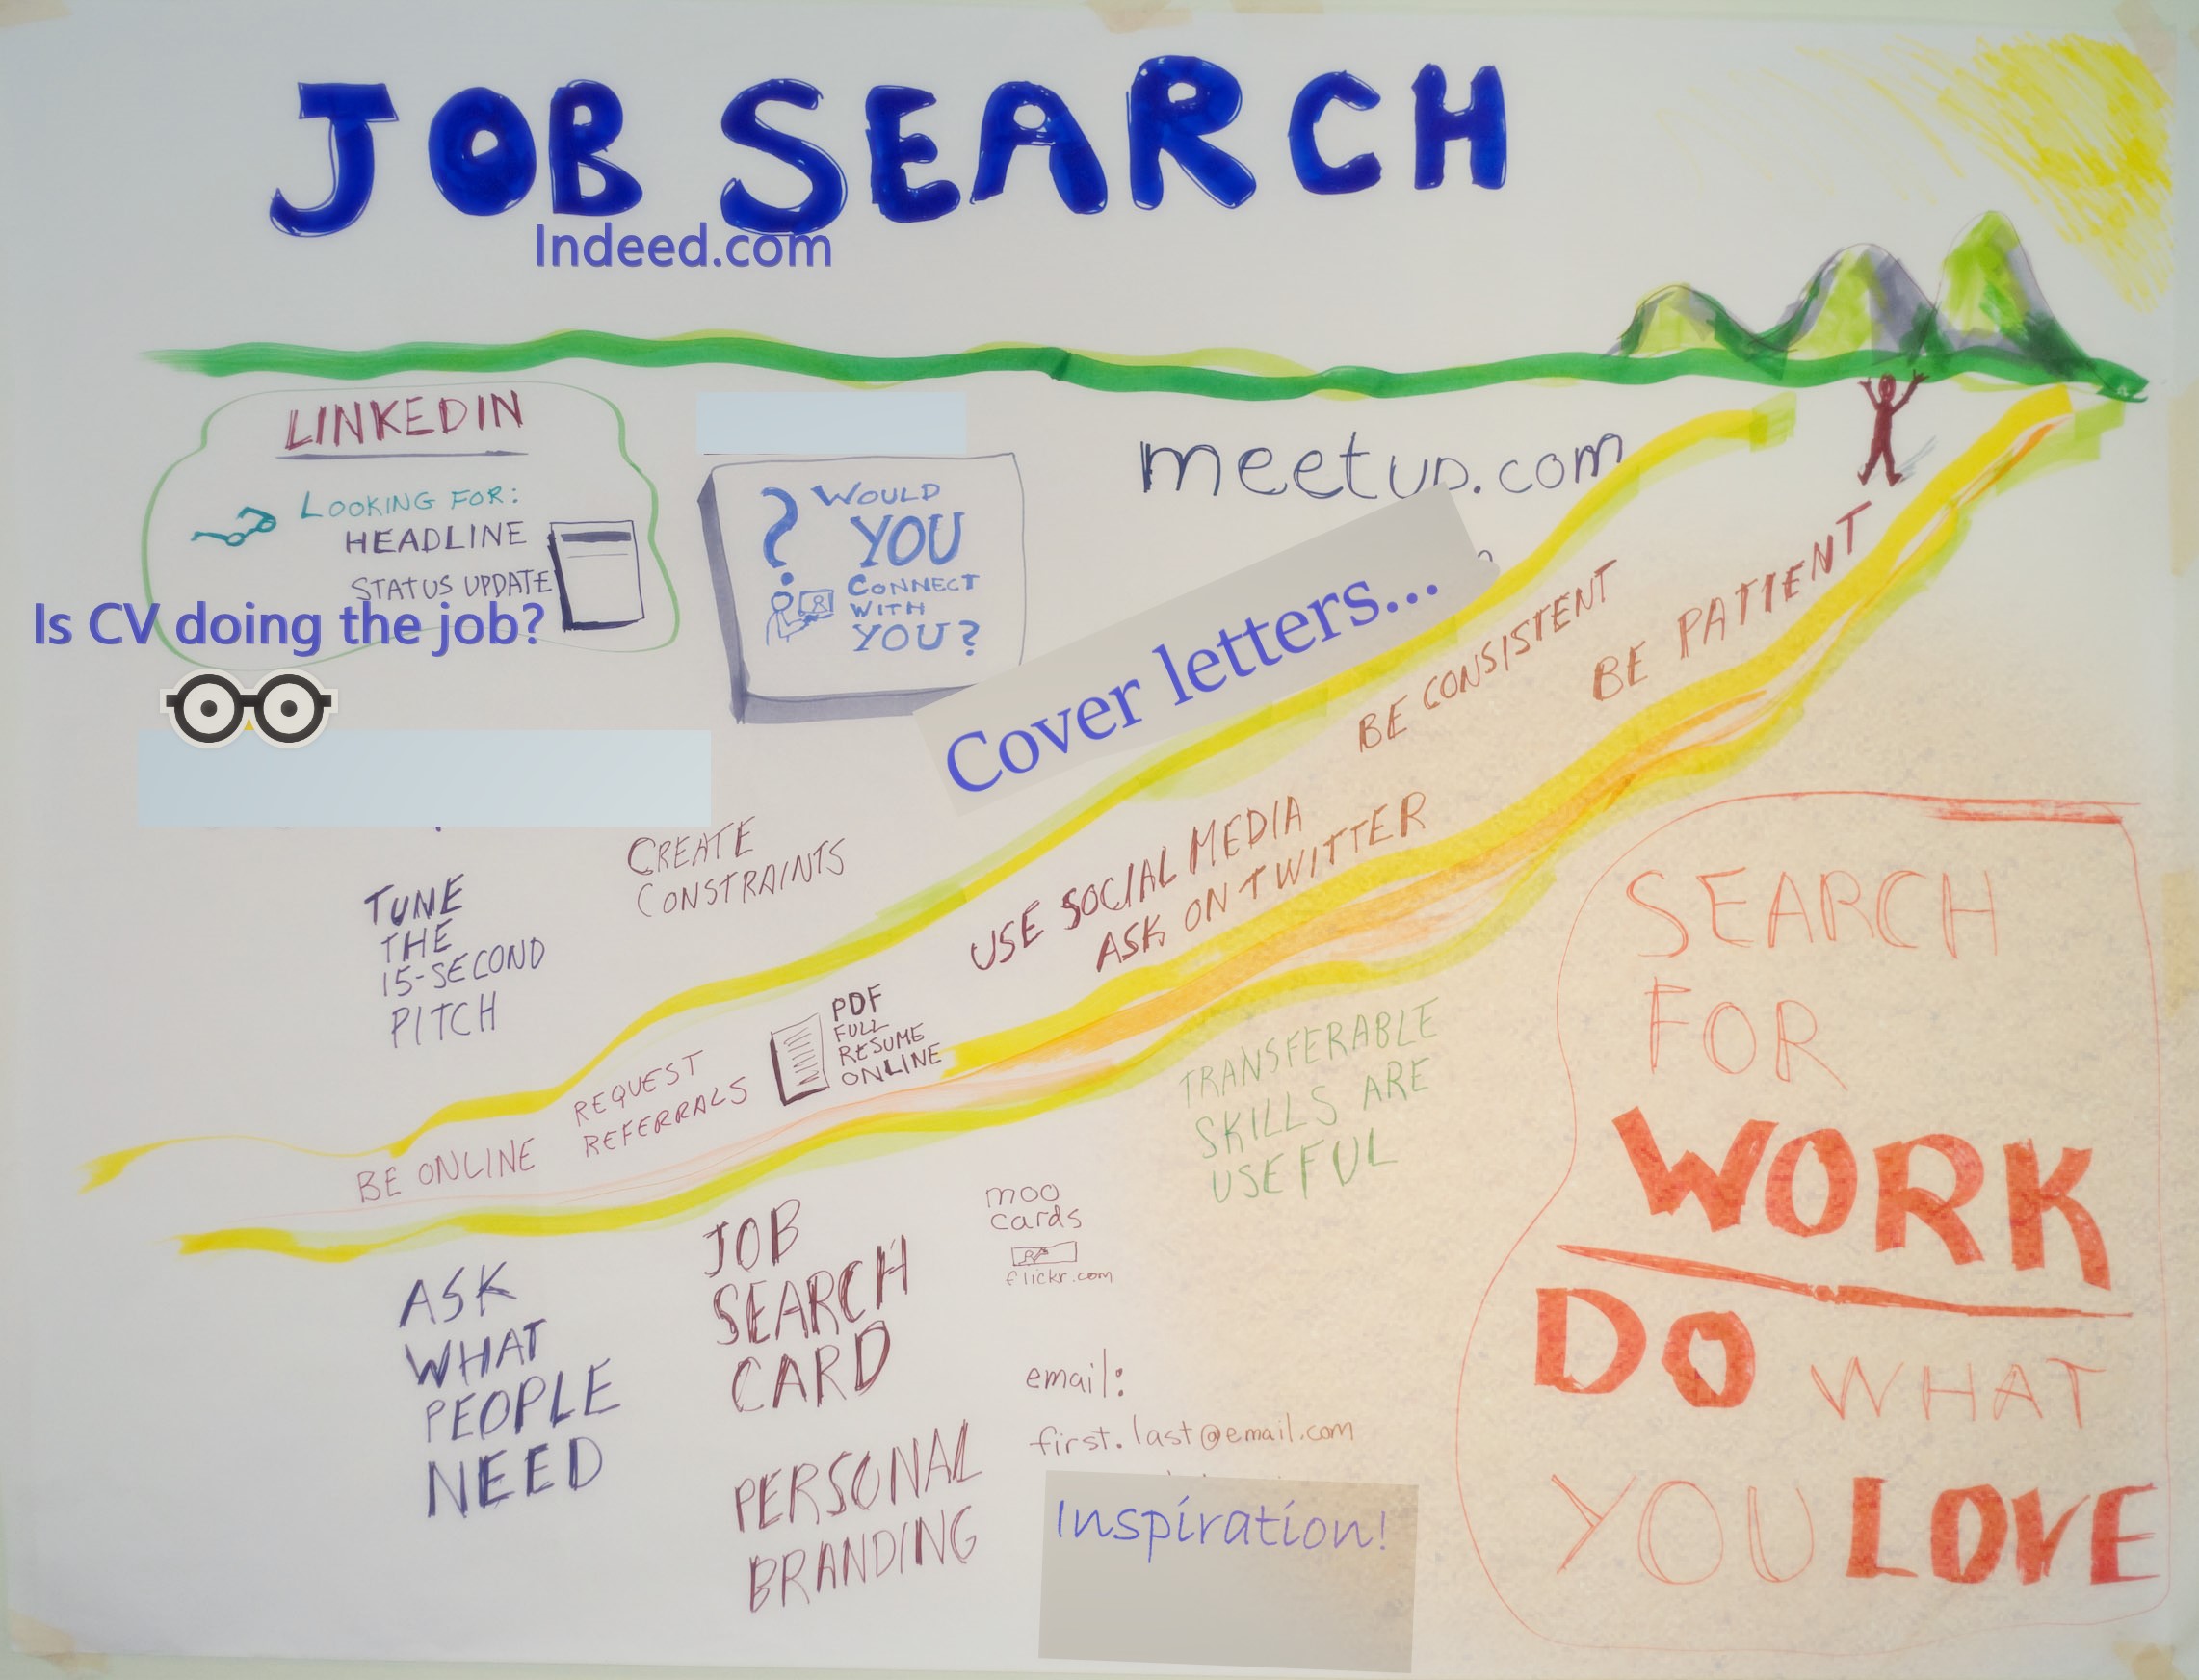 JOB SEARCH
Indeed.com
LINKEDIN
LOOKING FOR:
HEADLINE
STATUS UPDATE
Is CV doing the job?
? WOULD
YOU
CONNECT
WITH
YOU?
meetup.com
Cover letters...
BE CONSISTENT
BE PATIENT
CREATE
CONSTRAINTS
TUNE
THE
15-SECOND
PITCH
USE SOCIAL MEDIA
ASK ON TWITTER
PDF
FULL
RESUME
ONLINE
REQUEST
REFERRALS
BE ONLINE
TRANSFERABLE
SKILLS ARE
USEFUL
ASK
WHAT
PEOPLE
NEED
JOB
SEARCH
CARD
PERSONAL
BRANDING
moo
cards
flickr.com
email:
first.last@email.com
Inspiration!
SEARCH
FOR
WORK
DO WHAT
YOU LOVE